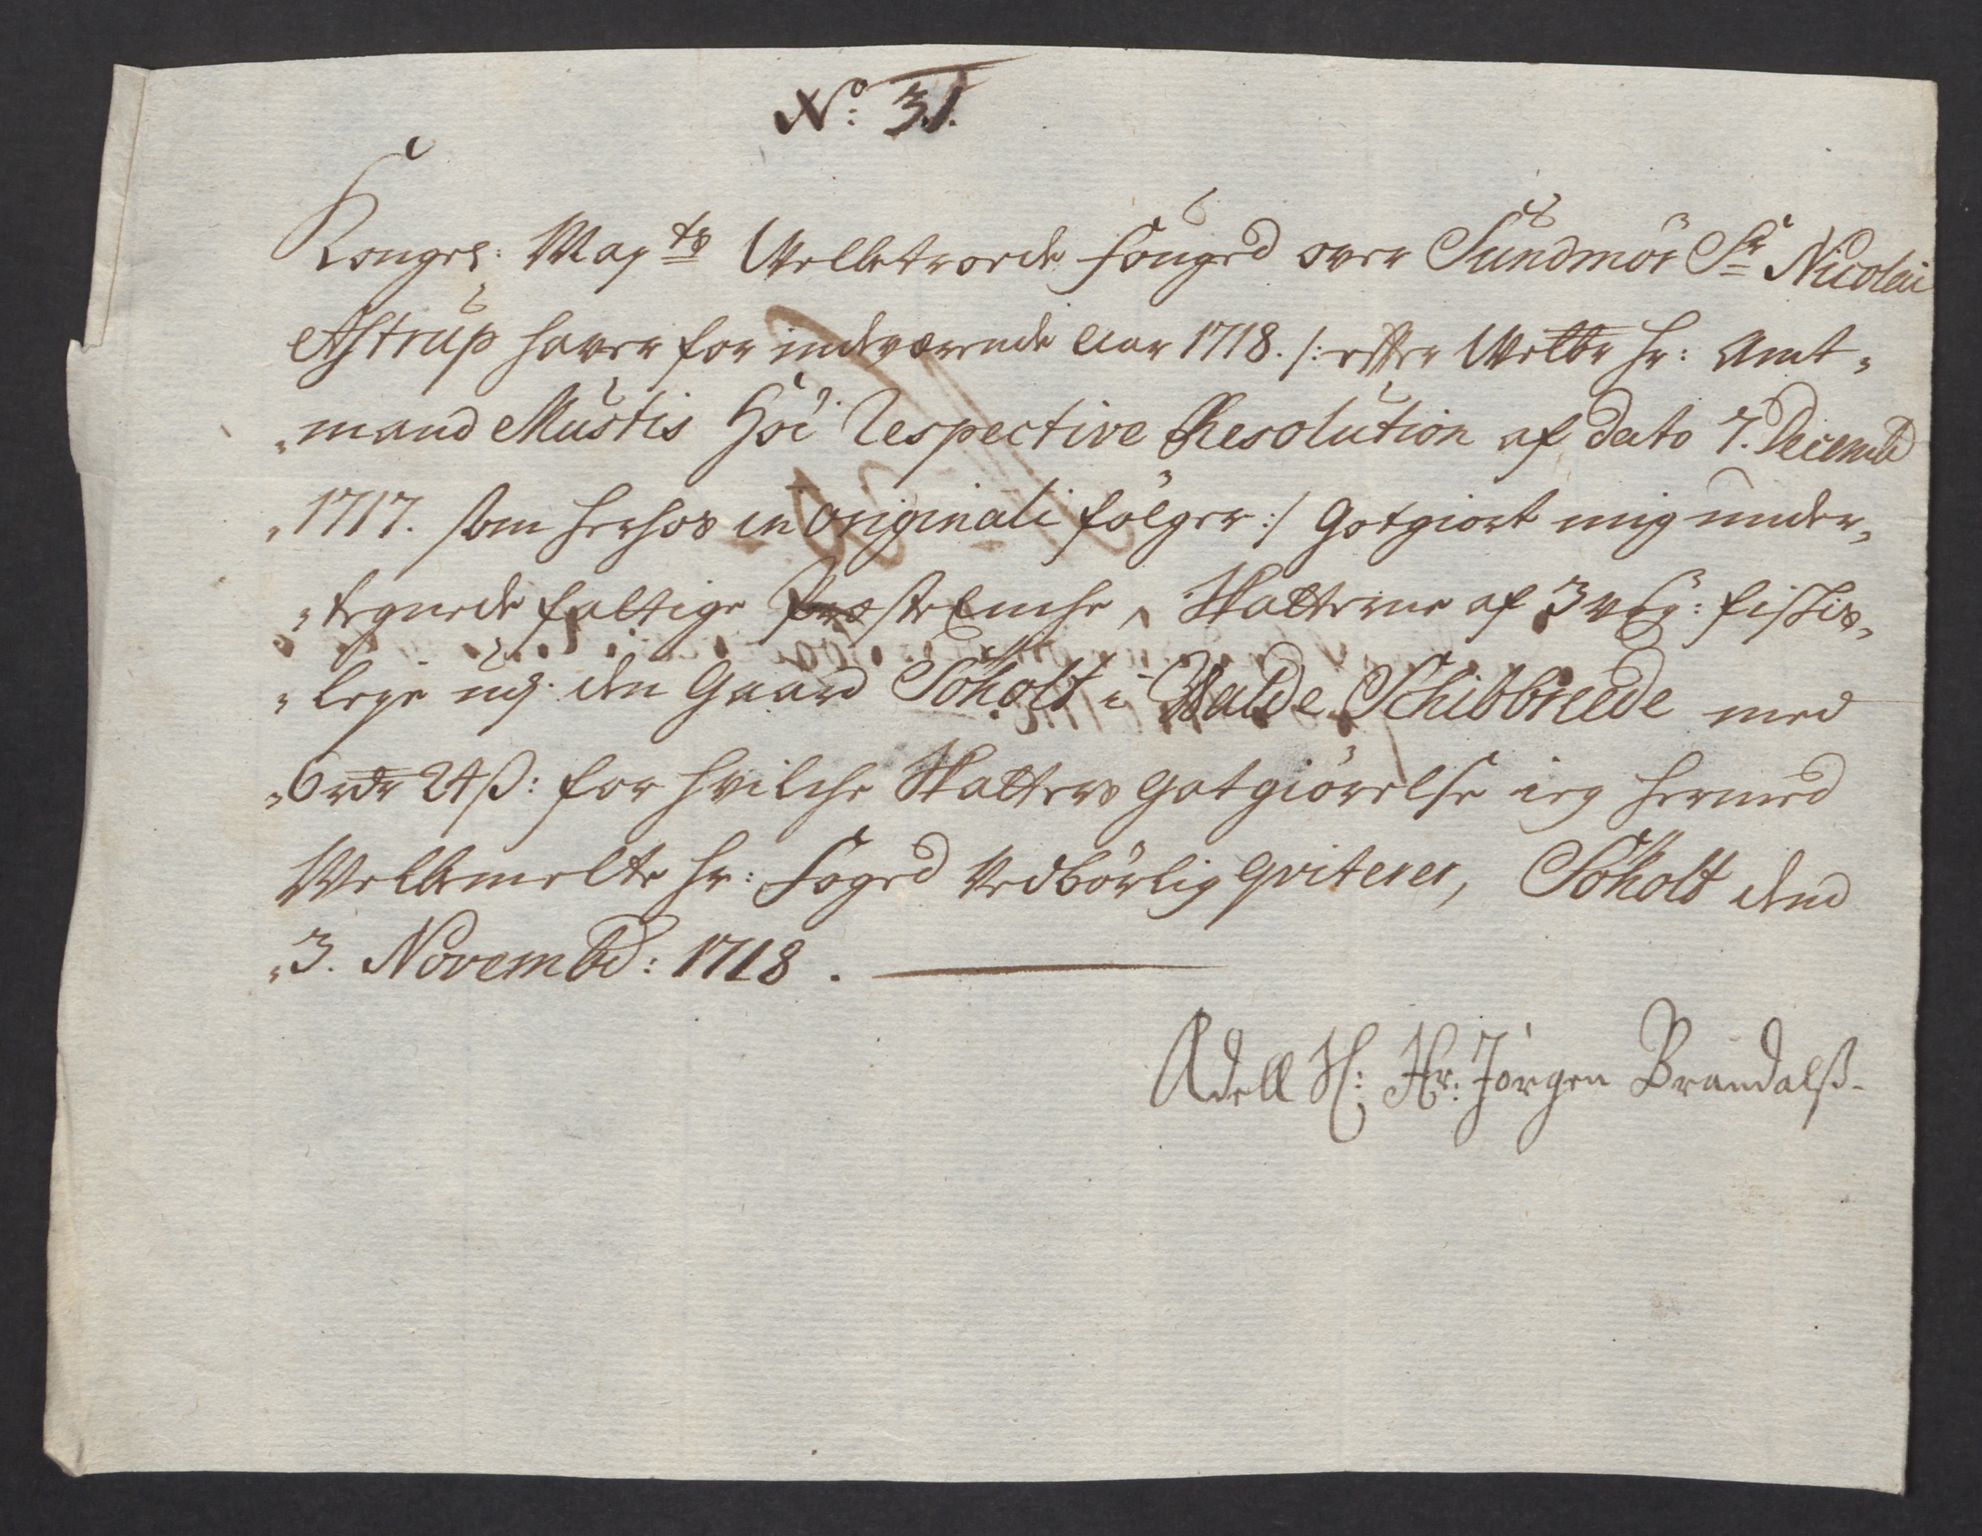 No: 31.
Kongel: May ts Velbetroede Fouged over Sundmör Sr Nicolai
Astrup haver for indeværende Aar 1718. /: efter Velbr Hr: Amt„
„mand Mustis Höi Respective Resolution af dato 7. Decembr
„1717. som herhos in originali fölger :/ Gotgiort mig under„
„tegnede fattige Præste Enche, Skatterne af 3 vog: fiskis„
„leye nl. den Gaard Söholt i Walde Schibbreede med
„6 rdr 24 ß: for hvilche Skatters Gotgiörelse ieg hermed
Velbemelte Hr: Foged Vedbörlig qviterer, Söholt dend
„3. Novembr: 1718.
Adell Sl: Hr: Jörgen Brandalß